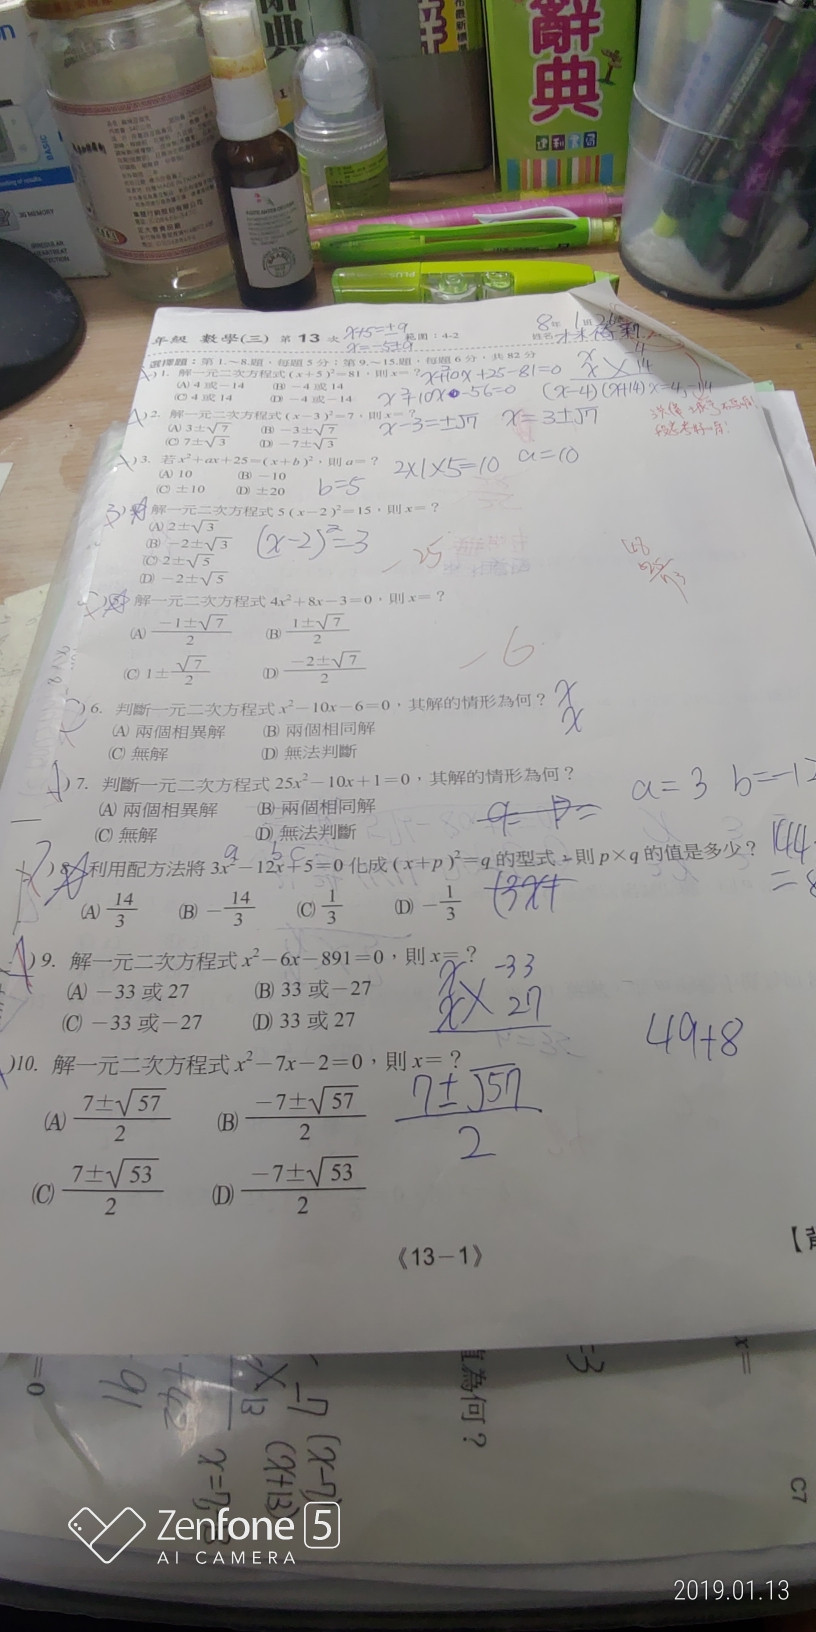 辭典
BASIC
3G MEMORY
IRREGULAR
HEARTBEAT
DETECTION
年級 數學(三) 第 13 次 範圍:4-2
x+5=±9
x=-5±9
8年 1班 26號
姓名:
選擇題:第1.~8.題,每題5分;第9.~15.題,每題6分,共82分
)1. 解一元二次方程式(x+5)²=81,則x=?
(A) 4或-14 (B) -4或14
(C) 4或14 (D) -4或-14
x²+10x+25-81=0
x²+10x-56=0
x 4
x 14
(x-4)(x+14) x=4,-14
)2. 解一元二次方程式(x-3)²=7,則x=?
(A) 3±√7 (B) -3±√7
(C) 7±√3 (D) -7±√3
x-3=±√7 x=3±√7
)3. 若x²+ax+25=(x+b)²,則a=?
(A) 10 (B) -10
(C) ±10 (D) ±20
2×1×5=10 a=10
b=5
解一元二次方程式5(x-2)²=15,則x=?
(A) 2±√3
(B) -2±√3
(C) 2±√5
(D) -2±√5
(x-2)²=3
-25
解一元二次方程式4x²+8x-3=0,則x=?
(A) (-1±√7)/2 (B) (1±√7)/2
(C) 1±√7/2 (D) (-2±√7)/2
-6
)6. 判斷一元二次方程式x²-10x-6=0,其解的情形為何?
(A) 兩個相異解 (B) 兩個相同解
(C) 無解 (D) 無法判斷
x
x
)7. 判斷一元二次方程式25x²-10x+1=0,其解的情形為何?
(A) 兩個相異解 (B) 兩個相同解
(C) 無解 (D) 無法判斷
a=3 b=-12
)8. 利用配方法將3x²-12x+5=0化成(x+p)²=q的型式,則p×q的值是多少?
a b c
(A) 14/3 (B) -14/3 (C) 1/3 (D) -1/3
144
=8
)9. 解一元二次方程式x²-6x-891=0,則x=?
(A) -33或27 (B) 33或-27
(C) -33或-27 (D) 33或27
x -33
x 27
49+8
)10. 解一元二次方程式x²-7x-2=0,則x=?
(A) (7±√57)/2 (B) (-7±√57)/2
(C) (7±√53)/2 (D) (-7±√53)/2
7±√57
2
《13-1》
【背
值為何?
=3
x=
=0
-91
+42
-7 (x-7)
13 (x+13)
C7
Zenfone 5
AI CAMERA
2019.01.13